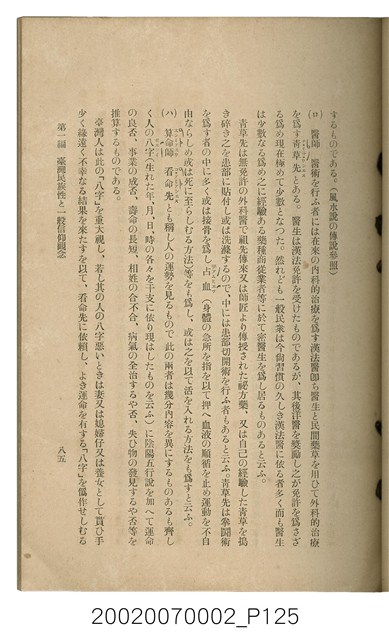 するものである。(風水說の傳說參照)
(ロ) 醫師 醫術を行ふ者には在來の内科的治療を爲す漢法醫卽ち醫生と民間藥草を用ひて外科的治療
を爲す靑草先とある。醫生は漢法免許を受けたものであるが、其後洋醫を奬勵し之が免許を爲さざ
る爲め現在極めて少數となつた。然れども一般民衆は今尙習慣の久しき漢法醫に依る者多く而も醫生
は少數なる爲め之に經驗ある藥種商從業者等に於て密醫生を爲し居るものあると云ふ。
靑草先は無免許の外科醫で祖先傳來又は師匠より傳授された祕方藥、又は自己の經驗した靑草を搗
き碎き之を患部に貼付し或は洗滌するので、中には患部切開術を行ふ者もあると云ふ。靑草先は拳鬪術
を爲す者の中に多く或は接骨を爲し占血(身體の急所を指を以て押へ血液の順循を止め運動を不自
由ならしめ或は死に至らしむる方法)等をも爲し、或は之を以て活を入れる方法をも爲すと云ふ。
(ハ) 算命師 看命先とも稱し人の運勢を見るもので此の兩者は幾分內容を異にするものあるも齊し
く人の八字(生れた年、月、日、時の各々を干支に依り現はしたものを云ふ)に陰陽五行說を加へて運命
の良否、事業の成否、壽命の長短、相姓の合不合、病氣の全治するや否、失ひ物の發見するや否等を
推算するものである。
臺灣人は此の「八字」を重大視し、若し其の人の八字惡いときは妻又は媳婦仔又は養女として貰ひ手
少く緣遠く不幸なる結果を來たすを以て、看命先に依賴し、よき運命を有する「八字」を僞作せしむる
第一編 臺灣民族性と一般信仰觀念 八五
20020070002_P125